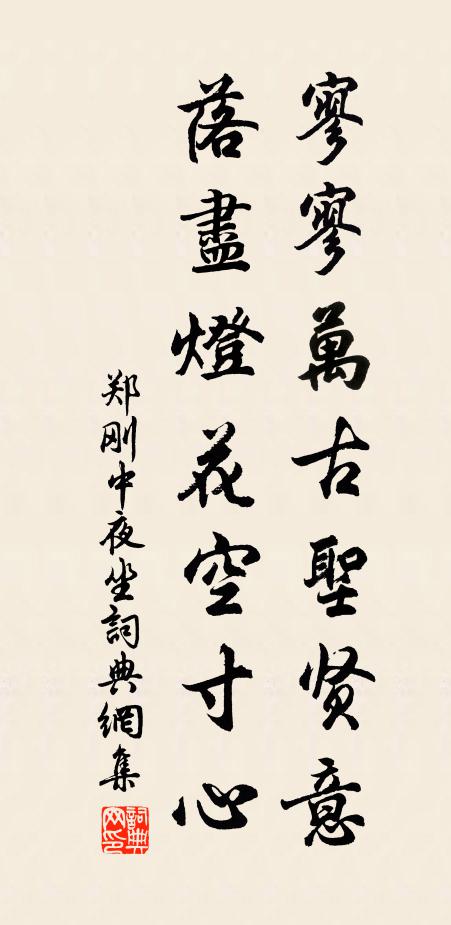 寥寥萬古聖贤意
落盡燈花空寸心
郑刚中夜坐詞典網集
詞典
网印